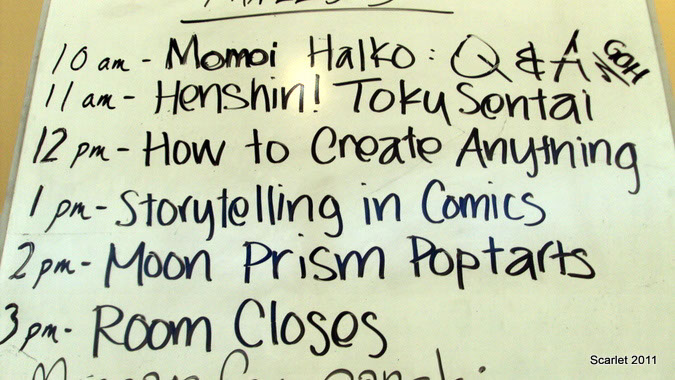 10 am - Momoi Halko: Q & A GOH
11 am - Henshin! Toku Sentai
12 pm - How to Create Anything
1 pm - Storytelling in Comics
2 pm - Moon Prism Poptarts
3 pm - Room Closes
Scarlet 2011